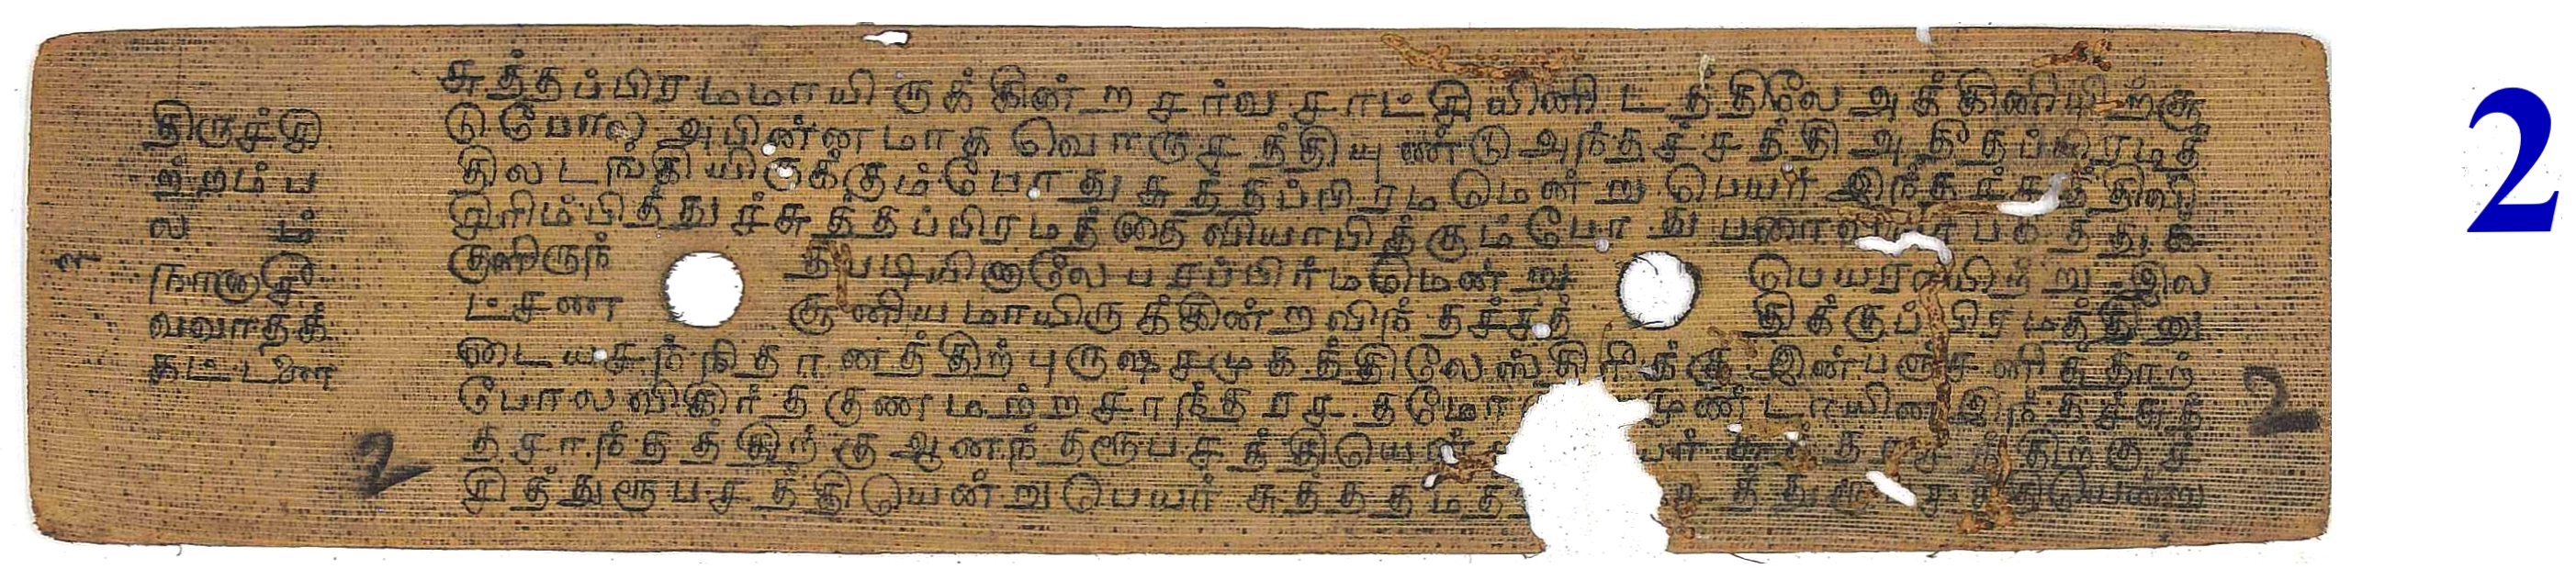 2
திருச்சி
ற்றம்ப
லம்
நானாசீ
வவாதக்
கட்டளை
சுத்தப்பிரமமாயிருக்கின்ற சர்வசாட்சியினிடத்திலே அக்கினியிற்சூ
டுபோல அபின்னமாக வொருசத்தியுண்டு அந்தச்சத்தி அதிதப்பிரமத்
திலடங்கியிருக்கும்போது சுத்தப்பிரமமென்று பெயர் இந்தச்சத்தி
பிரிம்பித்துச்சுத்தப்பிரமத்தை வியாபிக்கும்போது
குளிருந் தபடியினாலே பசப்பிர்மமென்று பெயராயிற்று இல
ட்சண சூனியமாயிருக்கின்றவிந் தச்சத் திக்குப் பிரமத்தினு
டையசந்நிதானத்திற் புருஷசமுகத்திலேஸ்திரிக்கு இன்பஞ்சனித்தாற்
போலவிகிர்தகுணமற்றசாந்த ரச தமோ முண்டாயின இந்தச்சுத்
தசாந்தத்திற்கு ஆனந்தரூபசத்தியென் பெயர் சுத்தராசதத்திற்குச்
சித்துரூபசத்தியென்றுபெயர் சுத்ததமத சத்துரூபசத்தியென்று
2
2